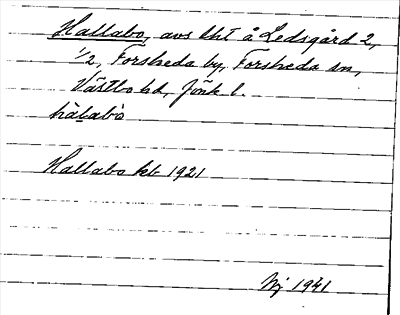 Hallabo, avs lht å Ledsgård 2,
1/2, Forsheda by, Forsheda sn,
Västbo hd, Jönk l.
hàlabò
Hallabo kb 1921
Nj 1941